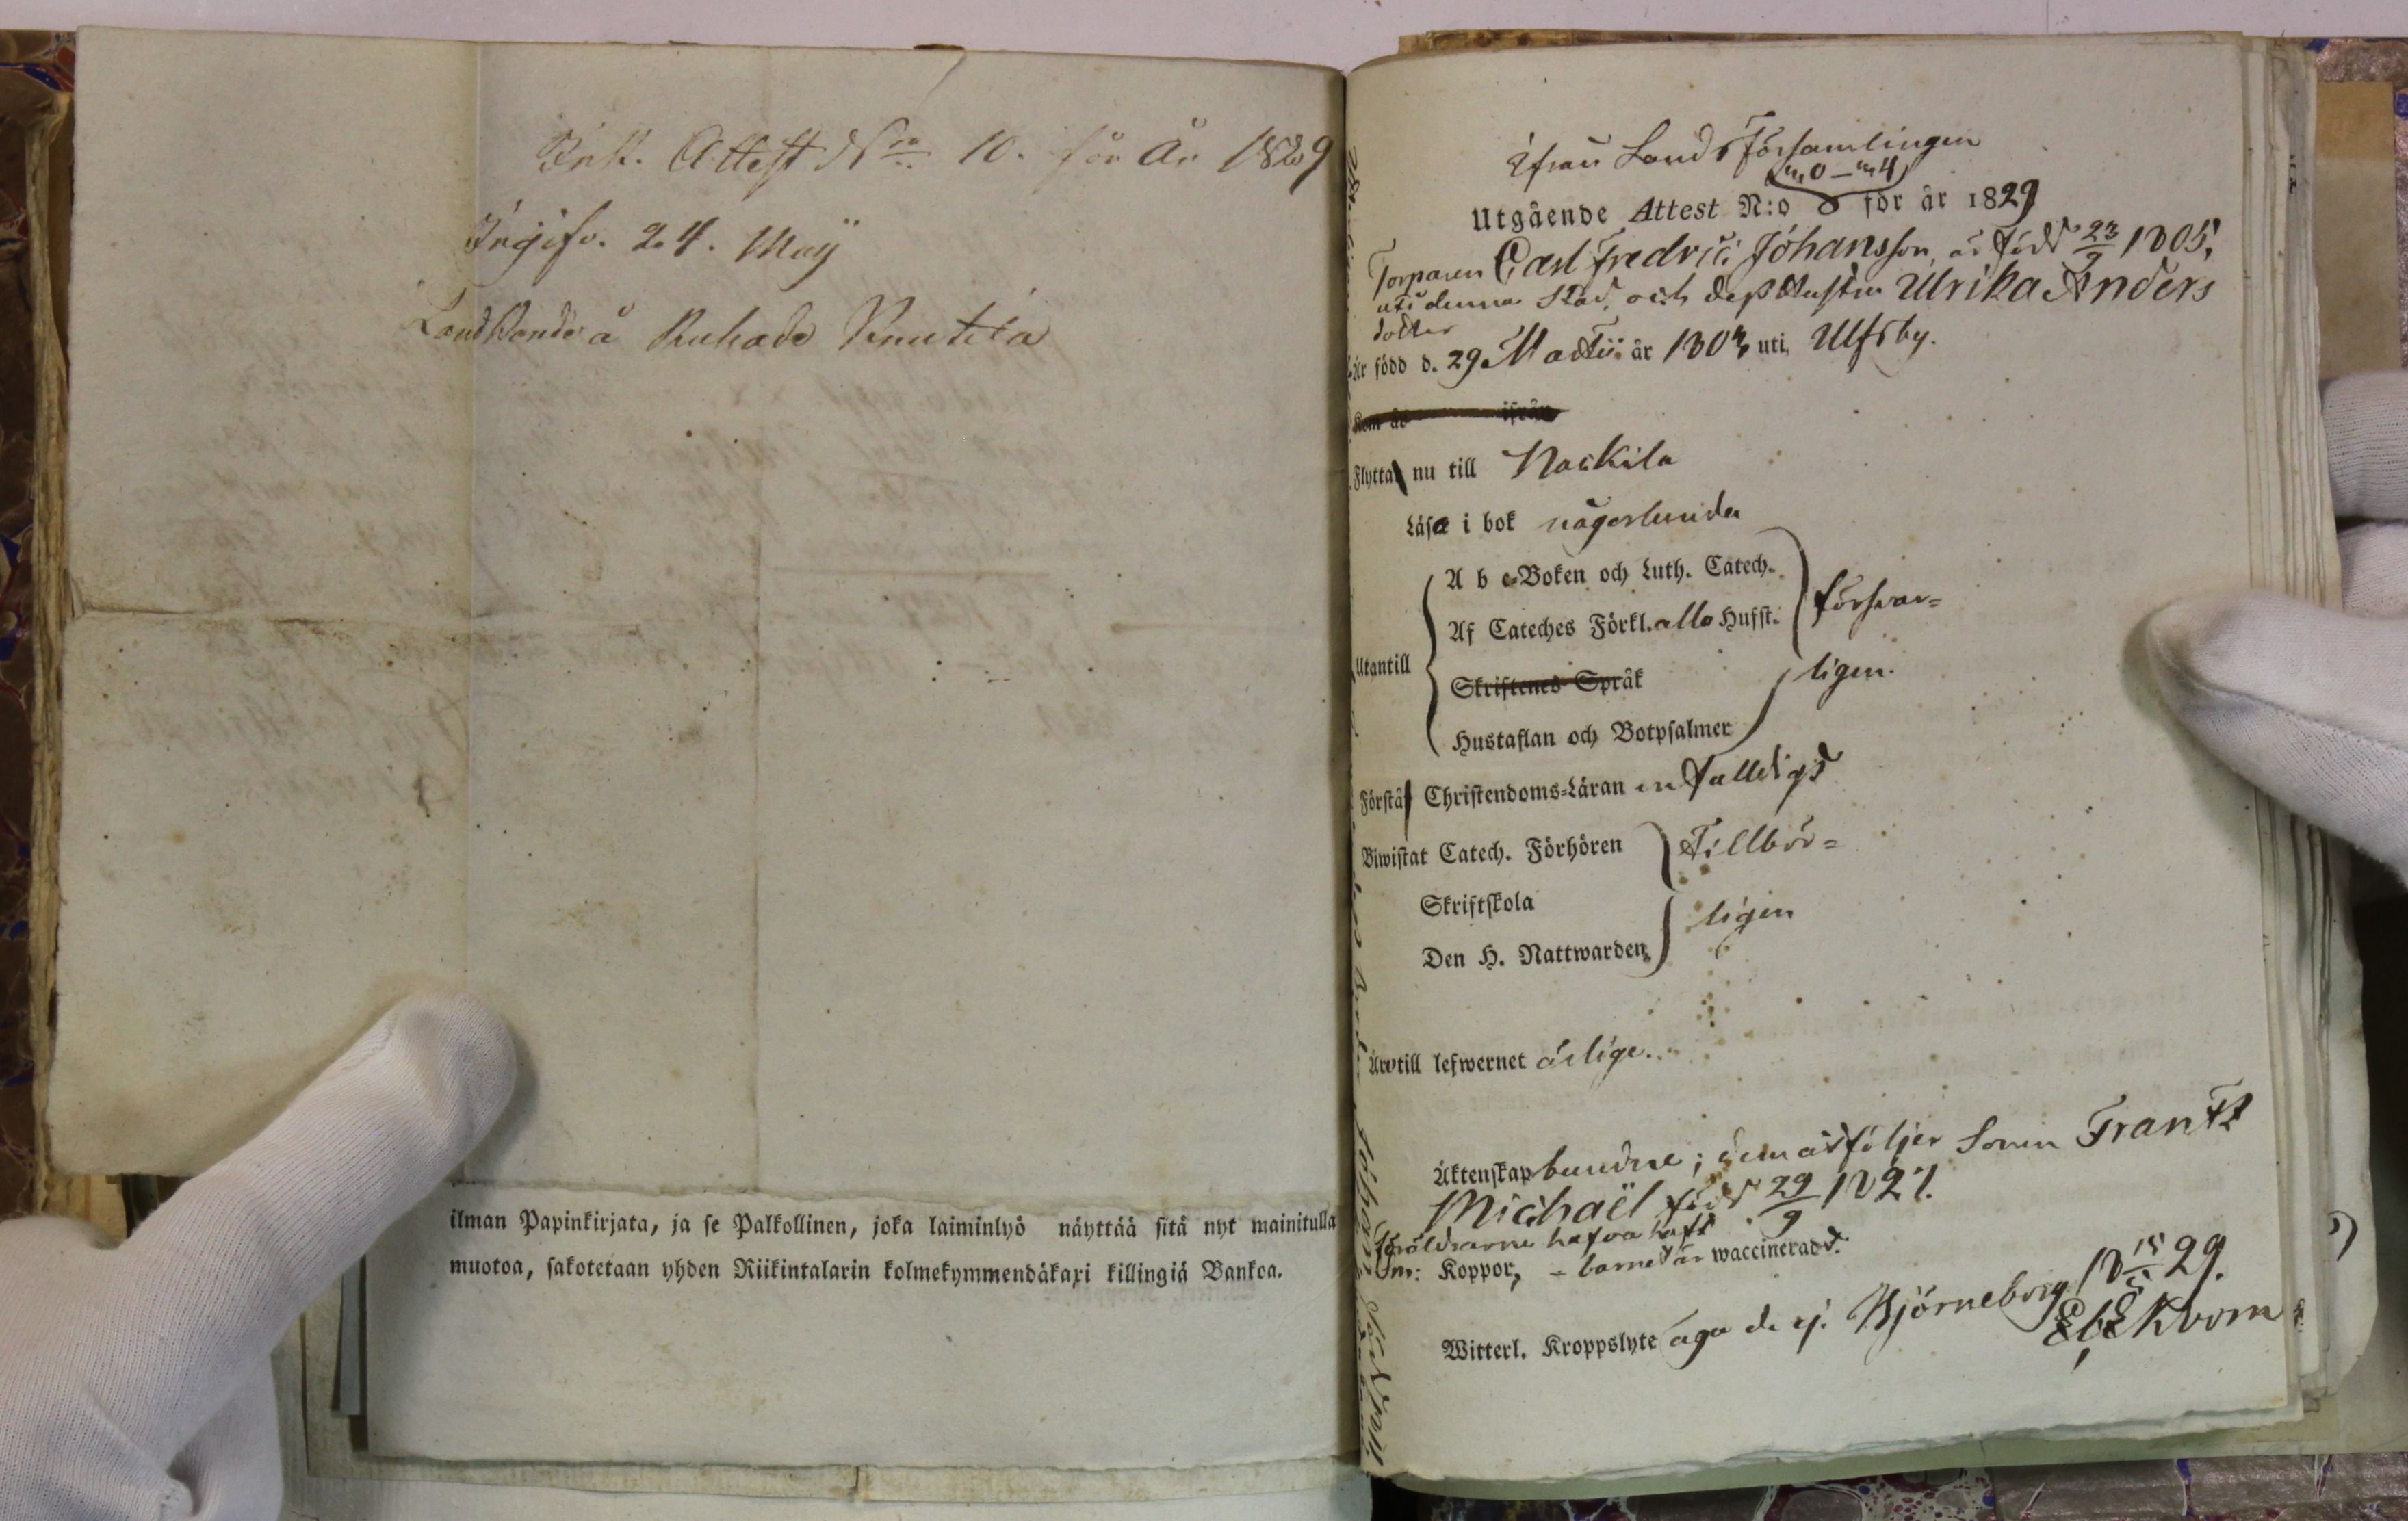 Ink. Attest N:ro 10. för År 1829
Ingifv. 24. Maij
Landbonde å Ruhade Knutila
ilman Papinkirjata, ja se Palkollinen, joka laiminlyö näyttää sitä nyt mainitulla
muotoa, sakotetaan yhden Riikintalarin kolmekymmendäkaxi killingiä Bankoa.
ifrån LandsFörsamlingen
m0 – m4
Utgående Attest N:o 8 för år 1829
Torparen Carl Fredric Johansson, är född 23/9 1805,
uti denna Stad, och dess Hustru Ulrika Anders
dotter
är född d. 29 Martii år 1803 uti Ulfsby.
Kom år ifrån
Flytta nu till Nackila
Läsa i bok någorlunda
Utantill
A b c-Boken och Luth. Catech.
Af Cateches Förkl. alla Hufst.
försvar=
Skriftenes Språk
ligen.
Hustaflan och Botpsalmer
Förstå Christendoms-Läran enfalldigt
Biwistat Catech. Förhören Tillbör=
Skriftskola
ligen
Den H. Nattwarden
Äro till lefwernet ärlige.
Äktenskap bundne; dem åtföljer Sonen Frantz
Michaël född 29/9 1827.
föräldrarne hafva haft
Koppor, – barnet är waccinerad.
Witterl. Kroppslyte äga de ej. Björneborg 18 15/5 29.
Ekbom